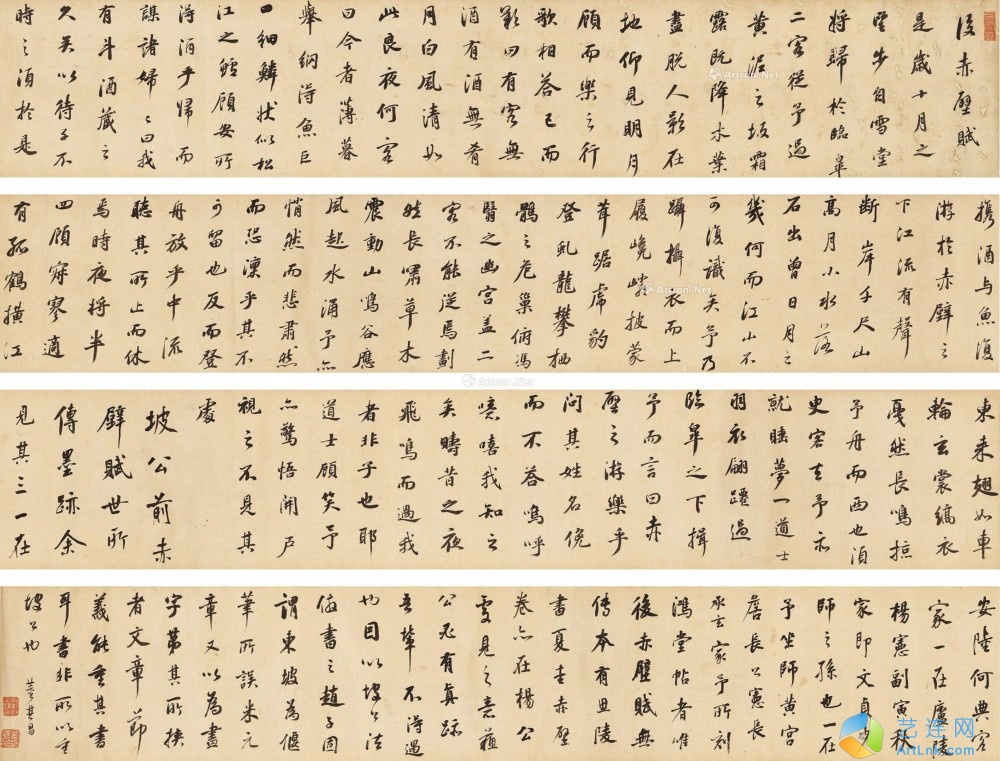 後赤壁賦
是歲十月之
望步自雪堂
將歸於臨皋
二客從予過
黃泥之坂霜
露既降木葉
盡脫人影在
地仰見明月
顧而樂之行
歌相答已而
歎曰有客無
酒有酒無肴
月白風清如
此良夜何客
曰今者薄暮
舉網得魚巨
口細鱗狀似松
江之鱸顧安所
得酒乎歸而
謀諸婦〻曰我
有斗酒藏之
久矣以待子不
時之須於是
攜酒与魚復
游於赤壁之
下江流有聲
斷岸千尺山
高月小水落
石出曾日月之
幾何而江山不
可復識矣予乃
躡攝衣而上
履巉巖披蒙
茸踞虎豹
登虬龍攀栖
鶻之危巢俯馮
翳之幽宮蓋二
客不能從焉劃
然長嘯草木
震動山鳴谷應
風起水涌予亦
悄然而悲肅然
而恐凜乎其不
可留也反而登
舟放乎中流
聽其所止而休
焉時夜將半
四顧寂寥適
有孤鶴橫江
東來翅如車
輪玄裳縞衣
戛然長鳴掠
予舟而西也須
臾客去予亦
就睡夢一道士
羽衣翩躚過
臨皋之下揖
予而言曰赤
壁之游樂乎
問其姓名俛
而不答嗚呼
噫嘻我知之
矣疇昔之夜
飛鳴而過我
者非子也耶
道士顧笑予
亦驚悟開戶
視之不見其
處
坡公前赤
壁賦世所
傳墨跡余
見其三一在
安陸何典客
家一在廬陵
楊憲副寅秋
家即文貞
師之孫也一在
予坐師黃宮
詹長公憲長
承玄家予所刻
鴻堂帖者唯
後赤壁賦無
傳本有思陵
書夏圭赤壁
卷亦在楊公
處見之意蘓
公必有真跡
吾輩不得遇
也因以坡公法
倣書之趙子固
謂東坡為偃
筆所誤米元
章又以為畫
字第其所挾
者文章節
義能重其書
耳書非所以重
坡公也
董其昌
艺连网
ArtLnk.com
Artron.Net